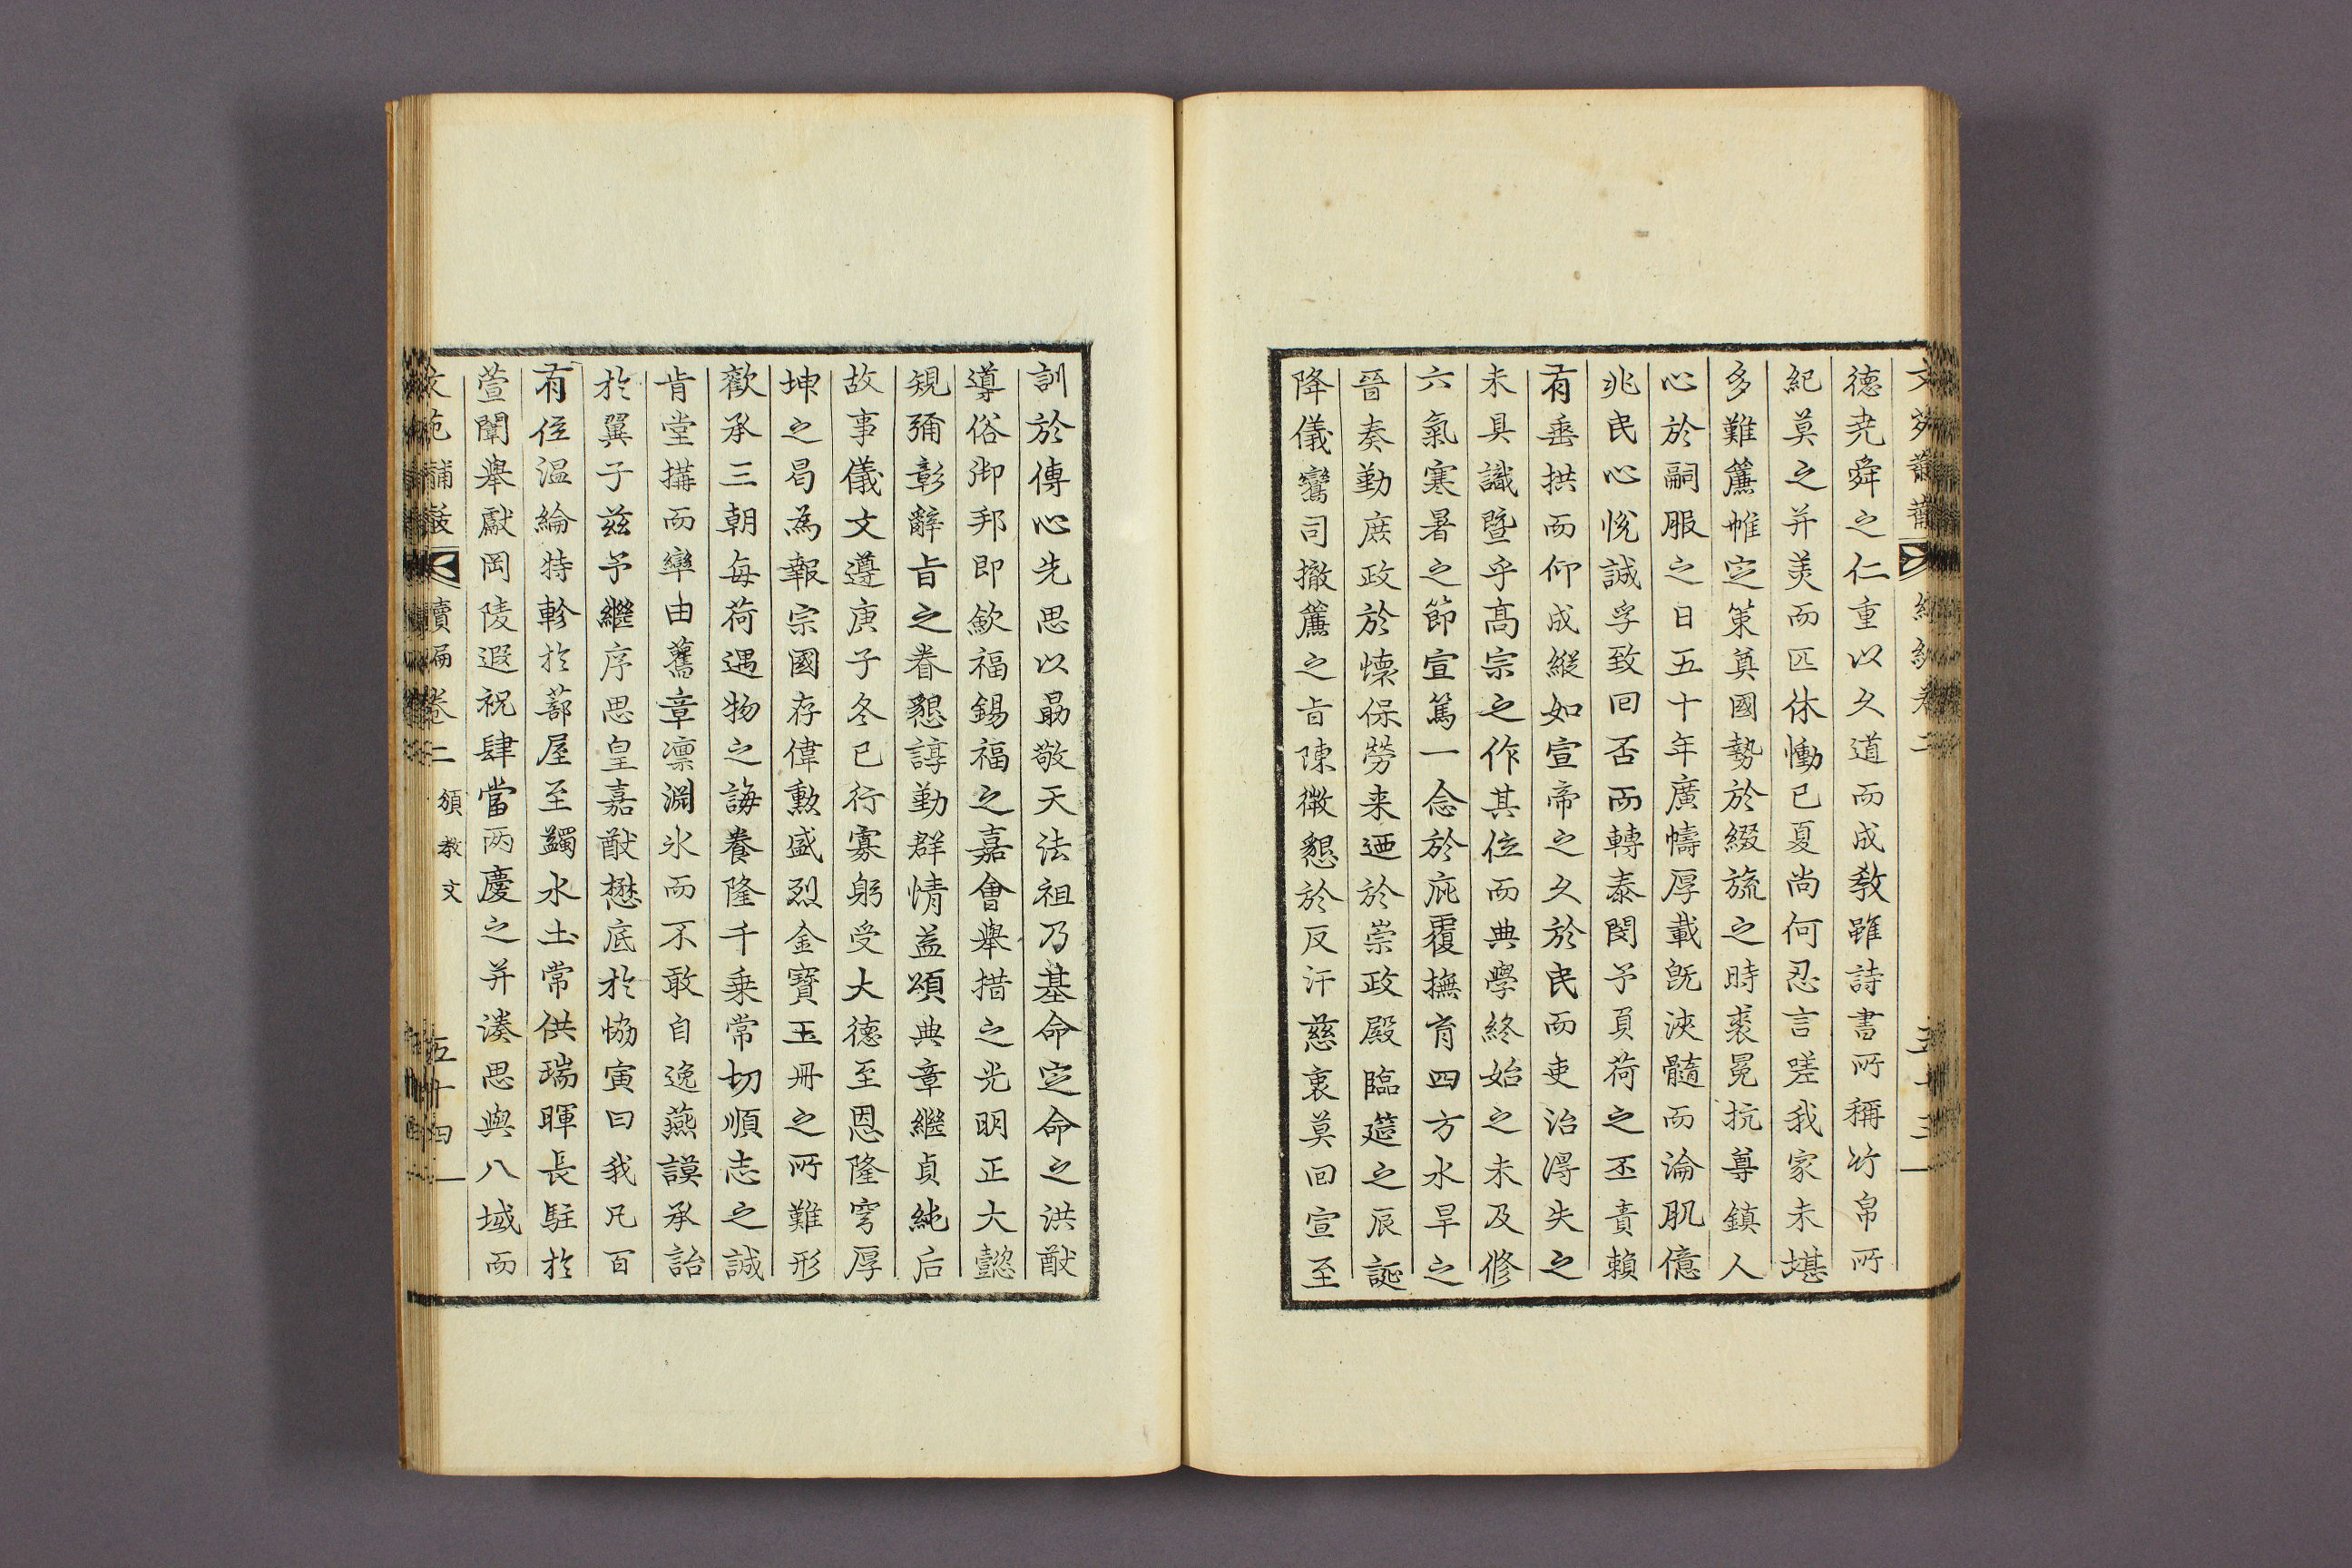 德尭舜之仁重以久道而成敎雖詩書所稱竹帛所
紀莫之并美而匹休慟已夏尚何忍言嗟我家未堪
多難簾帷定策奠國勢於綴旒之時裘冕抗尊鎭人
心於嗣服之日五十年廣幬厚載旣浹髓而淪肌億
兆民心悅誠孚致回否而轉泰閔予負荷之丕責賴
有垂拱而仰成縱如宣帝之久於民而吏治得失之
未具識曁乎高宗之作其位而典學終始之未及修
六氣寒暑之節宣篤一念於庇覆撫育四方水旱之
晉奏勤庶政於懷保勞來迺於崇政殿臨筵之辰誕
降儀鸞司撤簾之旨陳微懇於反汗慈衷莫回宣至
訓於傳心先思以勗敬天法祖乃基命定命之洪猷
導俗御邦即歛福錫福之嘉會擧措之光明正大懿
規彌彰辭旨之眷懇諄勤群情益頌典章繼貞純后
故事儀文遵庚子冬已行寡躬受大德至恩隆穹厚
坤之曷爲報宗國存偉勳盛烈金寶玉冊之所難形
歡承三朝每荷遇物之誨養隆千乗常切順志之誠
肯堂搆而率由舊章凛淵氷而不敢自逸燕謨承詒
於翼子玆予繼序思皇嘉猷懋底於恊寅曰我凡百
有位溫綸特軫於蔀屋至蠲水土常供瑞暉長駐於
萱闈擧獻岡陵遐祝肆當兩慶之并湊思與八域而
補 續編卷二 頒教文 五十四